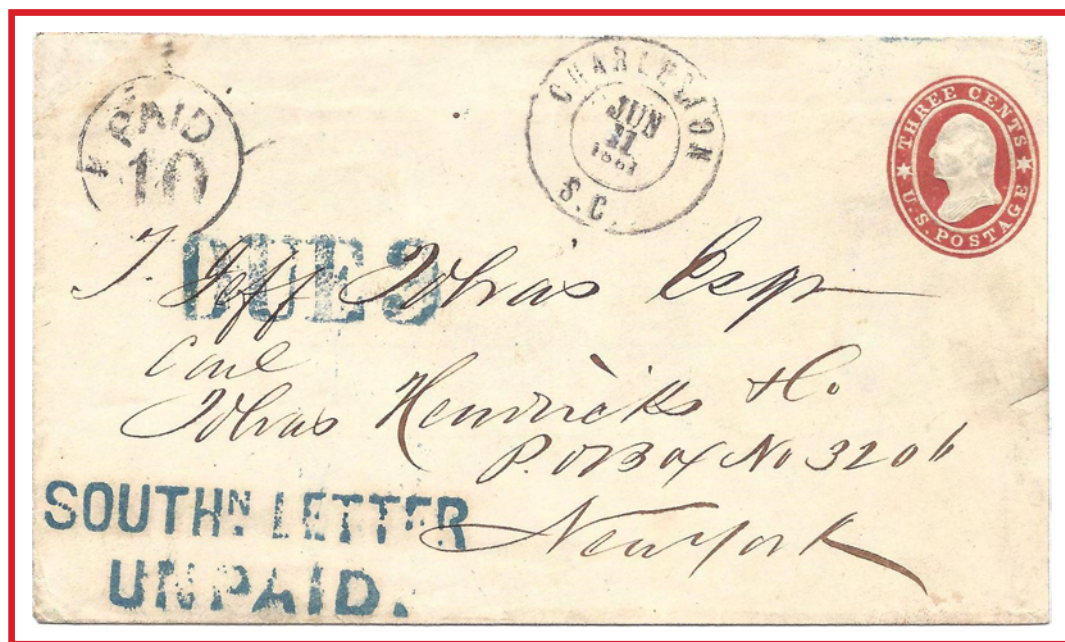 PAID
10
CHARLESTON
JUN
11
S.C.
THREE CENTS
U.S. POSTAGE
DUE 3
T. Jeff Tobias Esqr
Care
Tobias Hendricks & Co
P.O Box No 3206
New York
SOUTHN. LETTER
UNPAID.